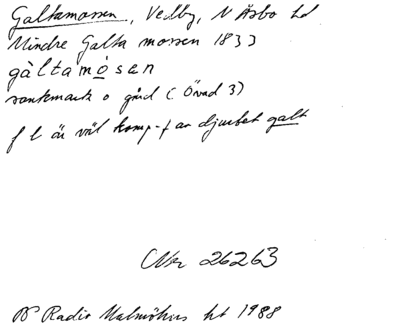 Galtamossen, Vedby, N Åsbo hd
Mindre Galta mossen 1833
gàltamósen
sankmark o gård (Övad 3)
f l är väl komp-f av djurbet galt
Nr 26263
Radio Malmöhus ht 1988